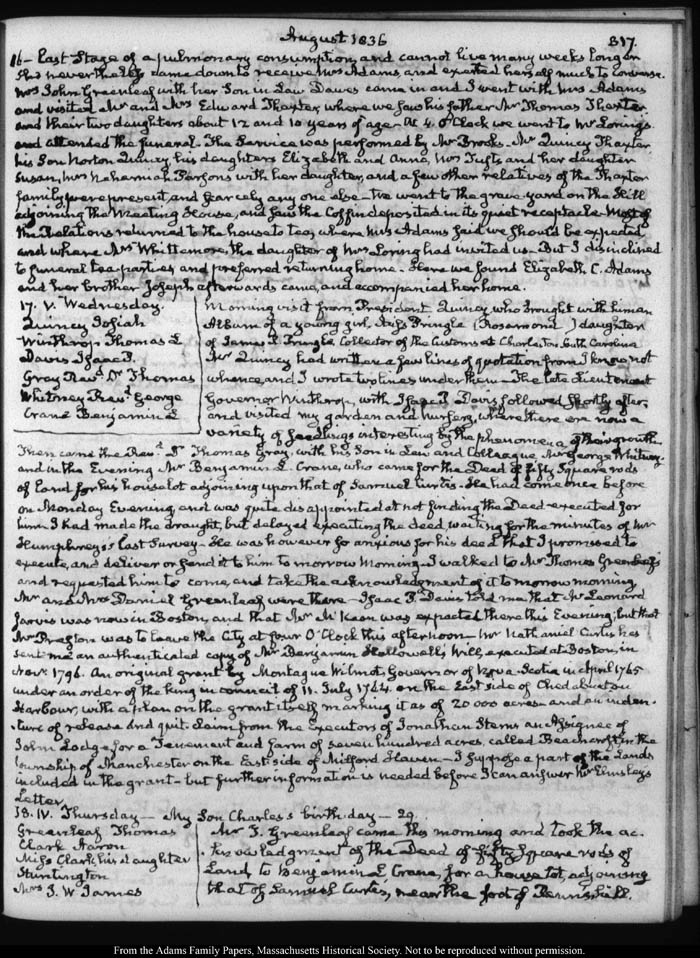 August 1836
317.
16- Last Stage of a pulmonary consumption, and cannot live many weeks longer
She nevertheless came down to receive Mrs Adams, and exerted herself much to converse.
Mrs John Greenleaf with her Son in Law Dawes came in and I went with Mrs Adams
and visited Mr and Mrs Edward Thaxter, where we saw his father Mr Thomas Thaxter
and their two daughters about 12 and 10 years of age- At 4. O'Clock we went to Mr Loring's
and attended the funeral- The Service was performed by Mr Brooks- Mr Quincy Thaxter
his Son Norton Quincy, his daughters Elizabeth and Anna, Mrs Tufts and her daughter
Susan, Mrs Nehemiah Parsons with her daughter, and a few other relatives of the Thaxter
family were present, and scarcely any one else- We went to the grave yard on the Hill
adjoining the Meeting House, and saw the Coffin deposited in its quiet receptacle- Most of
the Relations returned to the house to tea, where Mrs Adams said we should be expected
and where Mrs Whittemore, the daughter of Mrs Loring had invited us- But I disinclined
to funeral tea-parties and preferred returning home- Here we found Elizabeth C. Adams
and her brother Joseph afterwards came, and accompanied her home.
17. V. Wednesday.
Quincy Josiah
Winthrop Thomas L
Davis Isaac P.
Gray Revd Dr Thomas
Whitney Revd George
Crane Benjamin L
Morning visit from President Quincy who brought with him an
Album of a young girl, Miss Pringle (Rosamond ) daughter
of James R Pringle Collector of the Customs at Charleston South Carolina
Mr Quincy had written a few lines of quotation from I know not
whence, and I wrote two lines under them- The late Lieutenant
Governor Winthrop, with Isaac P. Davis followed shortly after,
and visited my garden and nursery, where there are now a
variety of seedlings interesting by the phenomena of their growth.
Then came the Revd Dr Thomas Gray, with his Son in Law and Colleague Mr George Whitney,
and in the Evening Mr Benjamin L. Crane, who came for the Deed of fifty square rods
of land for his house lot adjoining upon that of Samuel Curtis- He had come once before
on Monday Evening, and was quite disappointed at not finding the Deed executed for
him- I had made the draught, but delayed executing the deed, waiting for the minutes of Mr
Humphreys's last Survey- He was however so anxious for his deed that I promised to
execute, and deliver or send it to him to morrow Morning- I walked to Mr Thomas Greenleaf's
and requested him to come, and take the acknowledgment of it to morrow morning
Mr and Mrs Daniel Greenleaf were there- Isaac P. Davis told me that Mr Leonard
Jarvis was now in Boston, and that Mr McKean was expected there this Evening; but that
Mr Preston was to leave the City at four O'Clock this afternoon- Mr Nathaniel Curtis has
sent me an authenticated copy of Mr Benjamin Hallowell's Will, executed at Boston, in
Novr 1796. An original grant by Montague Wilmot, Governor of Nova-Scotia in April 1765
under an order of the king in council of 11. July 1764. on the East side of Chedabucto
Harbour, with a plan on the grant itself marking it as of 20 000 acres- and an inden-
-ture of release and quit-claim from the Executors of Jonathan Sterns an Assignee of
John Lodge, for a Tenement and farm of seven hundred acres, called Beachcroft in the
township of Manchester on the East side of Milford Haven- I suppose a part of the Lands
included in the grant- but further information is needed before I can answer Mr Elmsley's
Letter
18. IV. Thursday- My Son Charles's birth-day- 29.
Greenleaf Thomas
Clark Aaron
Miss Clark, his daughter
Huntington
Mrs J. W. James
Mr T. Greenleaf came this morning and took the ac-
-knowledgment of the Deed of fifty square rods of
Land to Benjamin L. Crane, for a house lot, adjoining
that of Samuel Curtis, near the foot of Penn's hill.
From the Adams Family Papers, Massachusetts Historical Society. Not to be reproduced without permission.